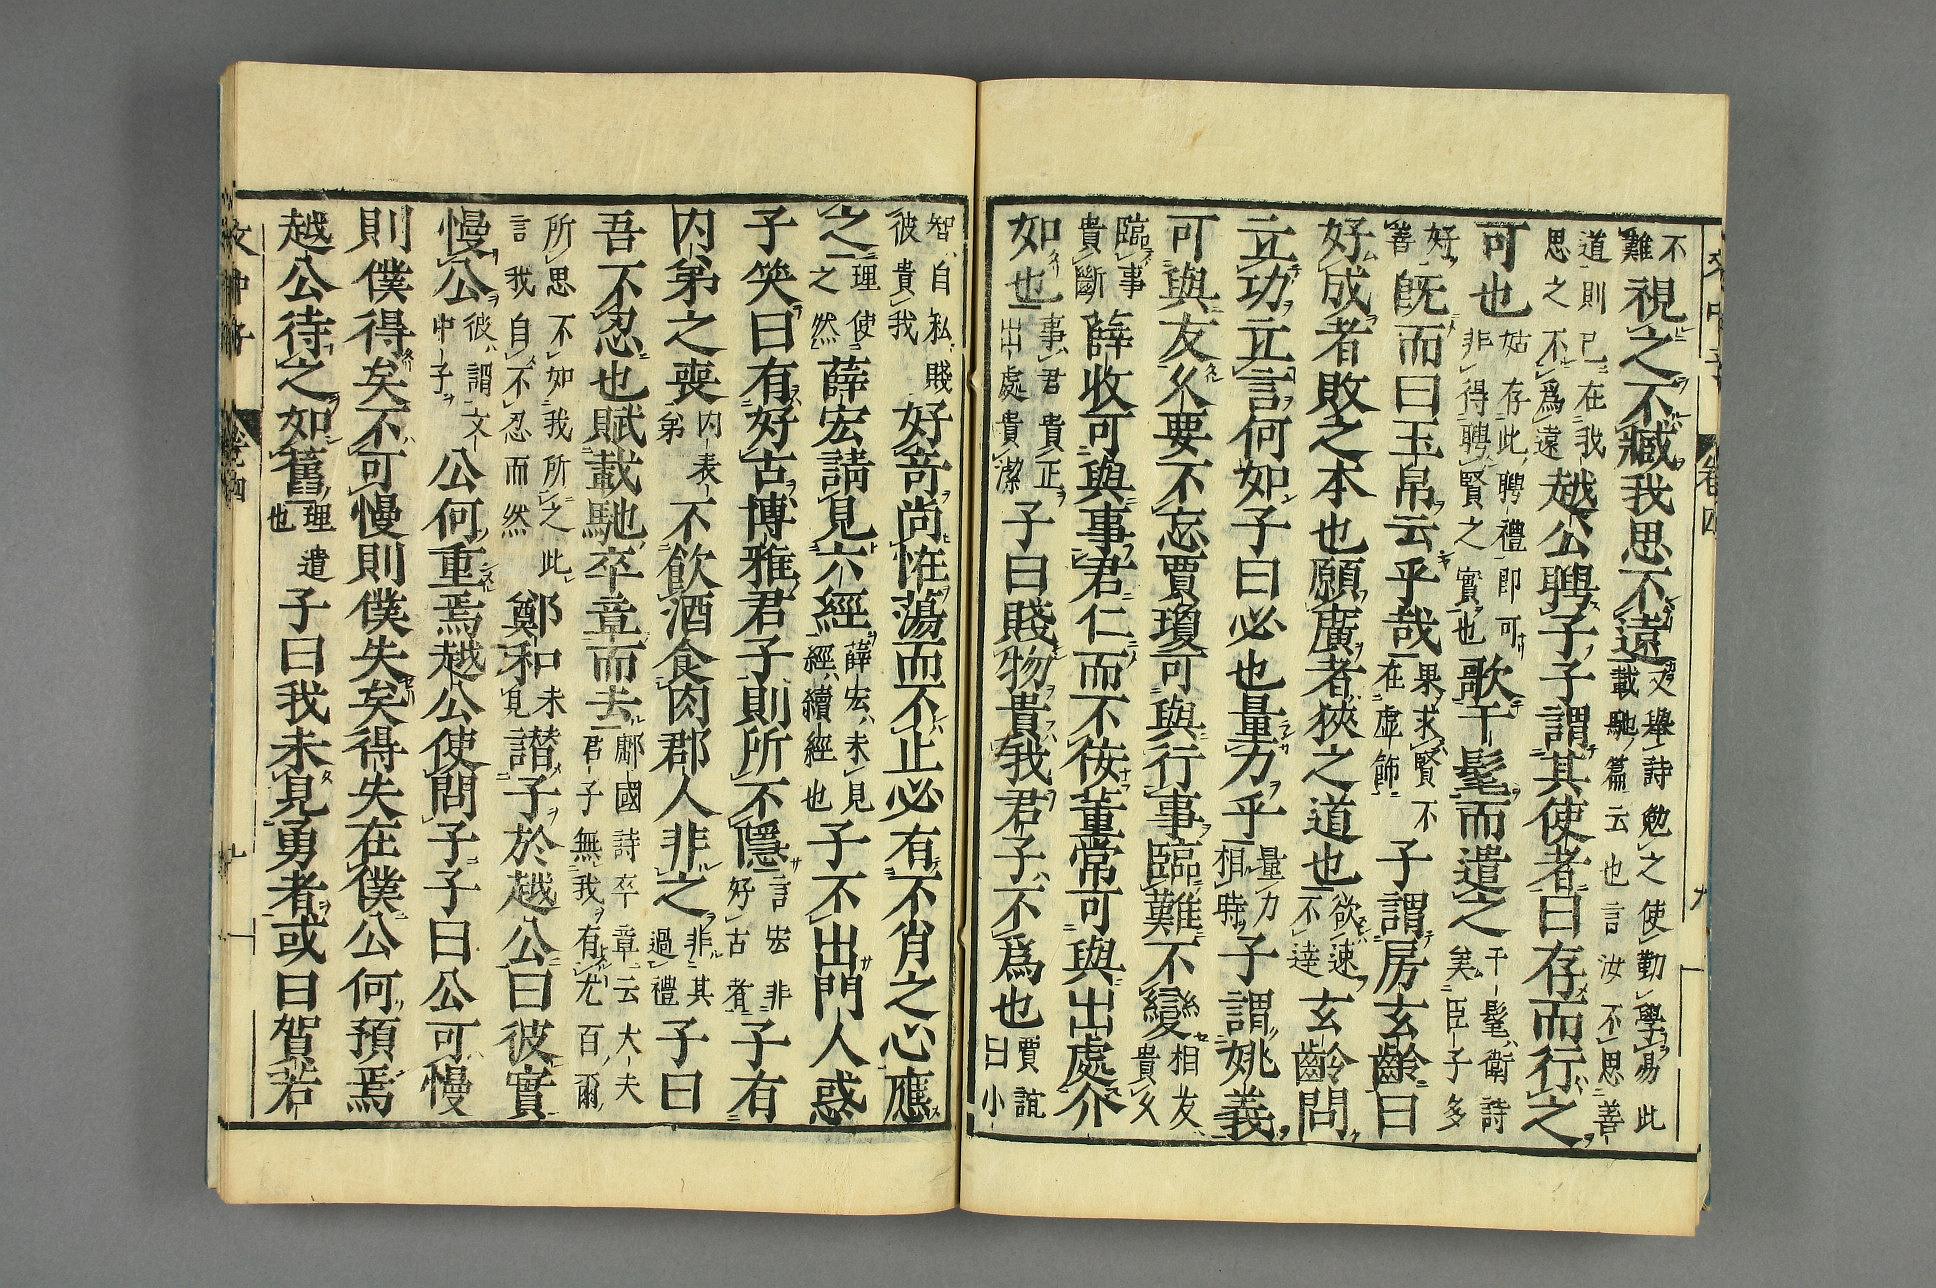 不難視之不臧我思不遠文擧詩勉之使勤學易此載馳篇云也言汝不思善
道則已在我思之不爲遠越公聘子子謂其使者曰存而行之
可也姑存此聘禮即可非得聘賢之實也歌干髦而遣之干髦衛詩美臣子多
好善既而曰玉帛云乎哉果求賢不在虚飾子謂房玄齡曰
好成者敗之本也願廣者狹之道也欲速不達玄齡問
立功立言何如子曰必也量力乎量力相時子謂姚義
可與友久要不忘賈瓊可與行事臨難不變相友貴久
臨事貴斷薛收可與事君仁而不佞董常可與出處介
如也事君貴正出處貴潔子曰賤物貴我君子不爲也賈誼曰小
智自私賤彼貴我好奇尚恠蕩而不止必有不肖之心應
之理使之然薛宏請見六經薛宏未見經續經也子不出門人惑
子笑曰有好古博雅君子則所不隱言宏非好古者子有
内弟之喪内表弟不飮酒食肉郡人非之非其過禮子曰
吾不忍也賦載馳卒章而去鄘國詩卒章云大夫君子無我有尤百爾
所思不如我所之此言我自不忍而然鄭和未見譖子於越公曰彼實
慢公彼謂文中子公何重焉越公使問子子曰公可慢
則僕得矣不可慢則僕失矣得失在僕公何預焉
越公待之如舊理遣也子曰我未見勇者或曰賀若
文中子
卷四